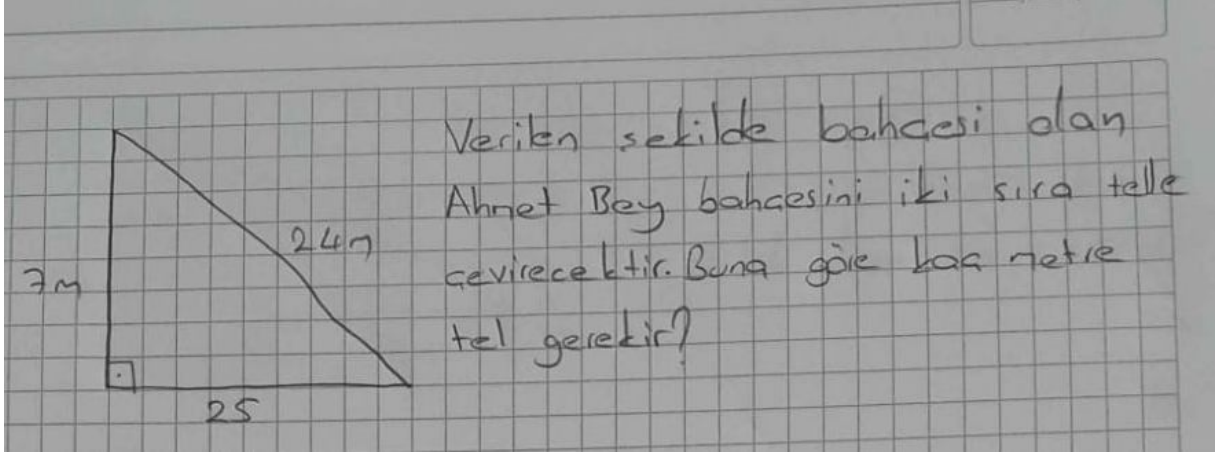 Verilen şekilde bahçesi olan
Ahmet Bey bahçesini iki sıra telle
çevirecektir. Buna göre kaç metre
tel gerekir?
24m
7m
25